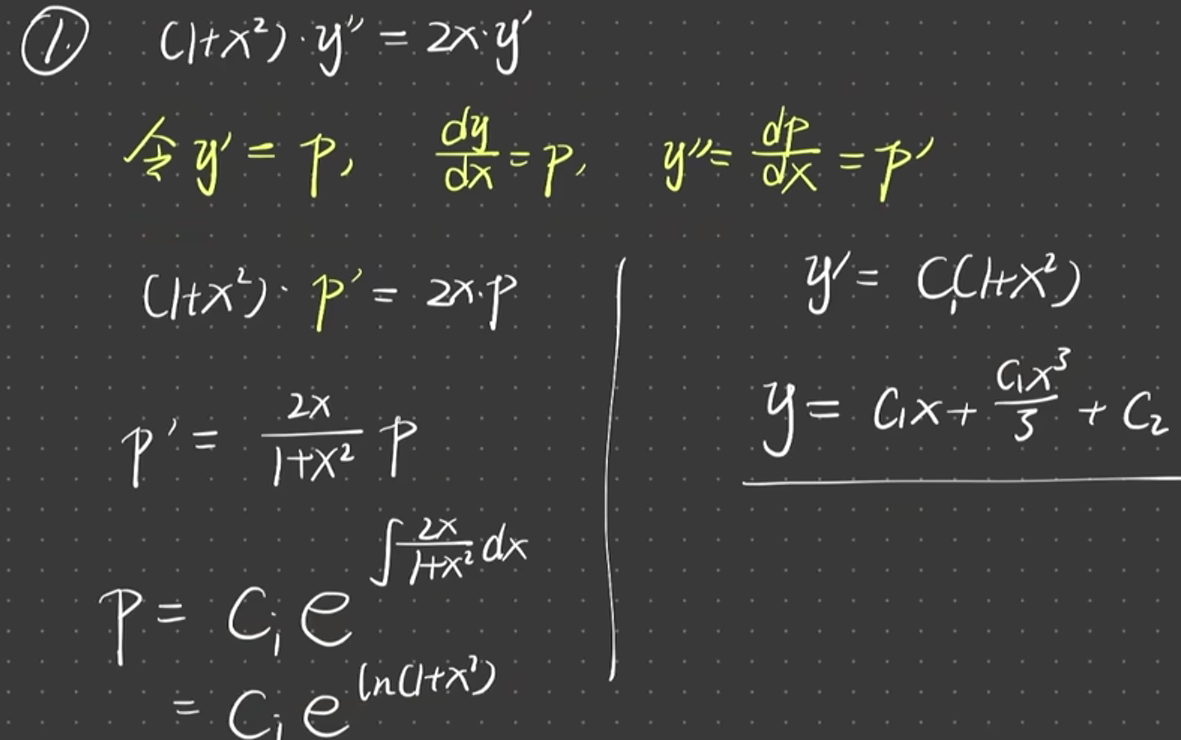 ① (1+x²)·y″ = 2x·y′
令 y′ = p, dy/dx = p, y″ = dp/dx = p′
(1+x²)·p′ = 2x·p
p′ = 2x/(1+x²) p
p = C₁e^(∫2x/(1+x²) dx)
= C₁e^(ln(1+x²))
y′ = C₁(1+x²)
y = C₁x + C₁x³/3 + C₂